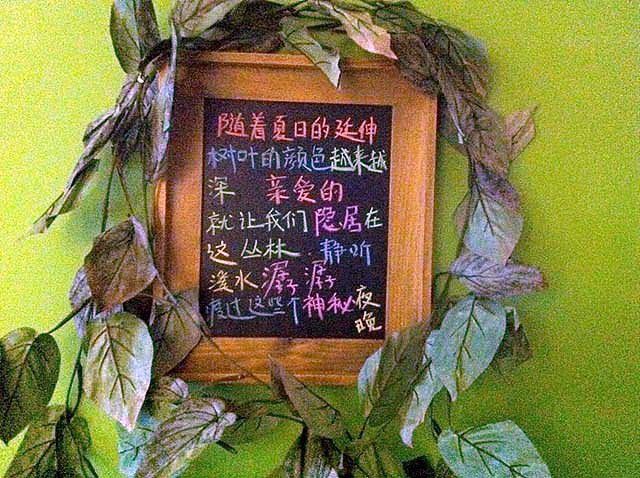 随着夏日的延伸
树叶的颜色越来越
深 亲爱的
就让我们隐居在
这丛林 静听
溪水潺潺
度过这些个神秘夜
晚